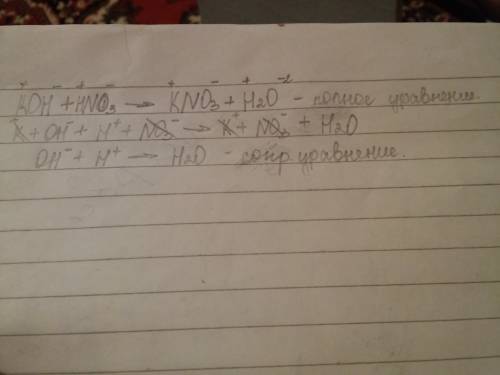 K⁺OH⁻ + H⁺NO₃⁻ → K⁺NO₃⁻ + H₂⁺O⁻² - полное уравнение.
K⁺ + OH⁻ + H⁺ + NO₃⁻ → K⁺ + NO₃⁻ + H₂O
OH⁻ + H⁺ → H₂O - сокр уравнение.